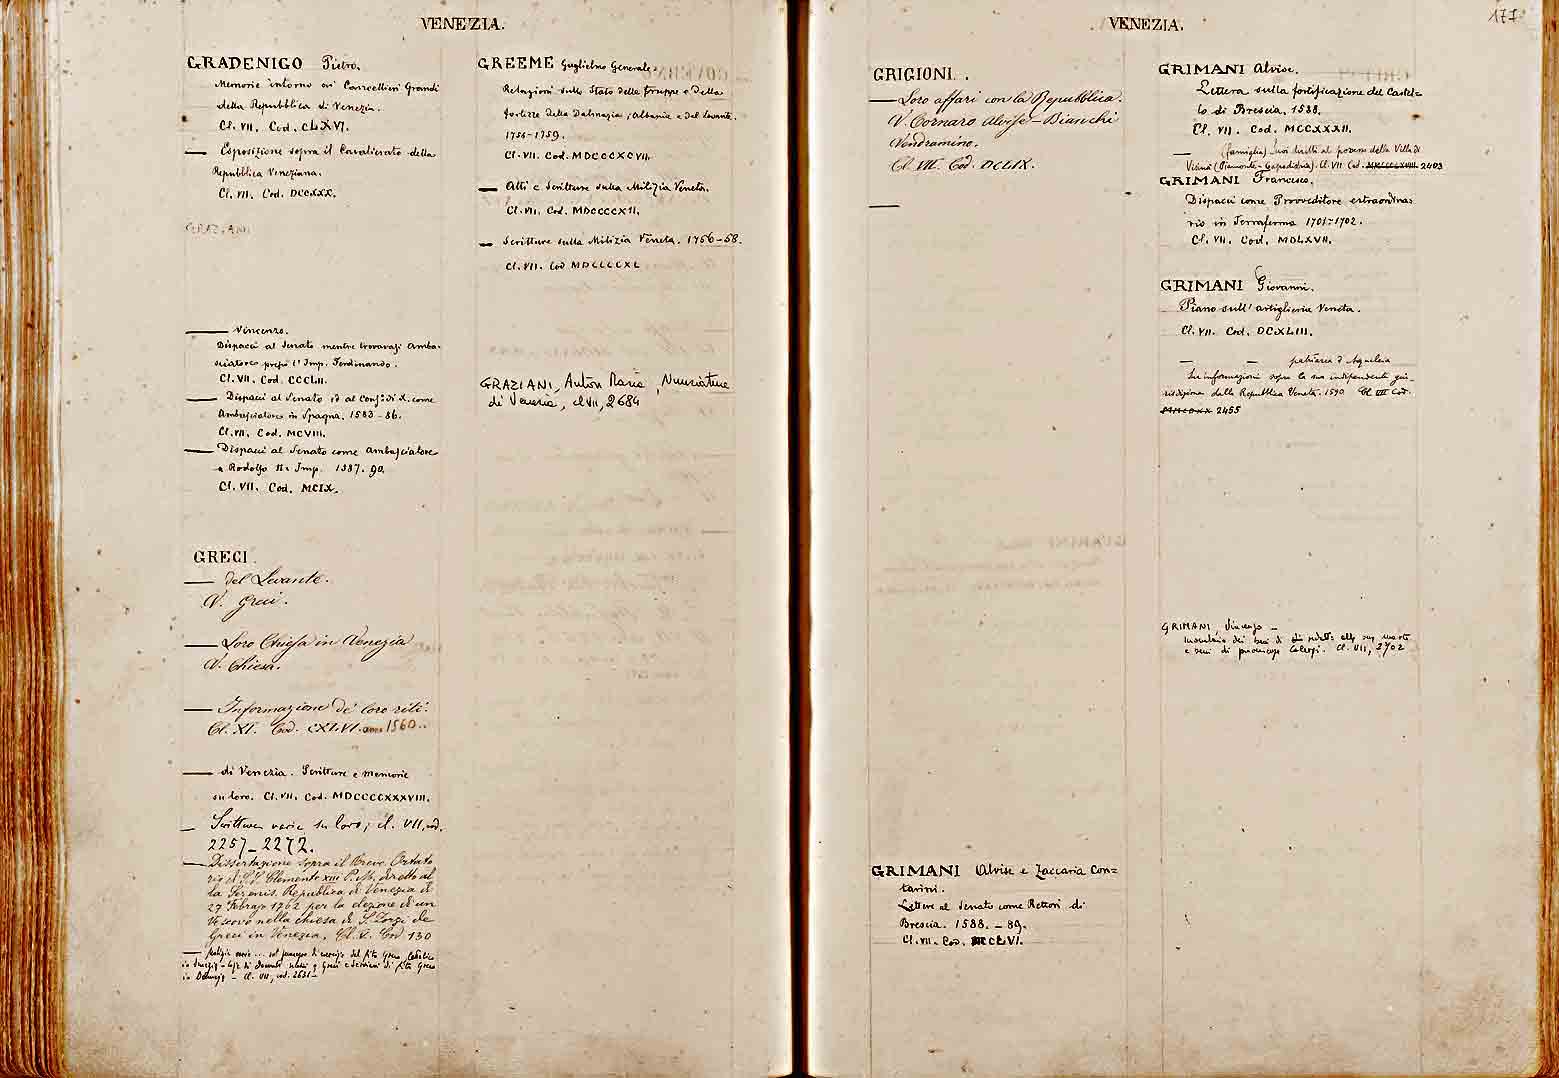 VENEZIA.
GRADENIGO Pietro.
Memorie intorno ai Cancellieri Grandi
della Repubblica di Venezia.
Cl. VII. Cod. CLXVI.
— Esposizione sopra il Cavalierato della
Repubblica Veneziana.
Cl. VII. Cod. DCCXXX.
GRAZIANI
— Vincenzo.
Dispacci al Senato mentre trovavasi Amba-
sciatore presso l'Imp. Ferdinando.
Cl. VII. Cod. CCCLII.
— Dispacci al Senato ed al Consº. di X. come
Ambasciatore in Spagna. 1583-86.
Cl. VII. Cod. MCVIII.
— Dispacci al Senato come Ambasciatore
a Rodolfo II. Imp. 1587. 90.
Cl. VII. Cod. MCIX.
GRECI.
— del Levante.
V. Greci.
— Loro Chiesa in Venezia
V. Chiesa.
— Informazione de' loro riti.
Cl. XI. Cod. CXLVI. anno 1560..
— di Venezia. Scritture e memorie
su loro. Cl. VII. Cod. MDCCCCXXXVIII.
— Scritture varie su loro; cl. VII, cod.
2257-2272.
— Dissertazione sopra il Breve Ortato
rio di S.S. Clemente XIII P.M. diretto al
la Sereniss. Republica di Venezia di
27 Febrajo 1762 per la elezione di un
Vescovo nella chiesa di S. Zorzi de
Greci in Venezia. Cl. V. Cod 130
— Notizie varie ... del rito Greco Cattolico
in Venezia - e Greci e Serviani di rito Greco
in Dalmazia - Cl. VII, cod. 2631-
GREEME Guglielmo Generale.
Relazioni sullo Stato delle truppe e delle
fortezze della Dalmazia, Albania e del Levante.
1756-1759.
Cl. VII. Cod. MDCCCXCVII.
— Atti e Scritture sulla Milizia Veneta.
Cl. VII. Cod. MDCCCCXII.
— Scritture sulla Milizia Veneta. 1756-58.
Cl. VII. Cod MDCCCCXL
GRAZIANI, Anton Maria, Nunziatura
di Venezia, cl VII, 2684
VENEZIA.
177
GRIGIONI.
— Loro affari con la Repubblica.
V. Cornaro Alvise - Bianchi
Vendramino.
Cl. VII. Cod. DCLIX.
—
GRIMANI Alvise e Zaccaria Con=
tarini.
Lettere al Senato come Rettori di
Brescia. 1588. - 89.
Cl. VII. Cod. MCCLVI.
GRIMANI Alvise.
Lettera sulla fortificazione del Castel=
lo di Brescia. 1588.
Cl. VII. Cod. MCCXXXII.
— (famiglia) suoi diritti al possesso della Villa di
Visinà (Piemonte-Capodistria). Cl. VII Cod. 2403
GRIMANI Francesco.
Dispacci come Provveditore estraordina=
rio in Terraferma 1701-1702.
Cl. VII. Cod. MDLXVII.
GRIMANI Giovanni.
Piano sull' artiglieria Veneta.
Cl. VII. Cod. DCXLIII.
— — patriarca d'Aquileia
Sue informazioni sopra la sua indipendente giu-
risdizione dalla Repubblica Veneta. 1590 Cl VII Cod.
2455
GRIMANI Vincenzo -
Inventario dei beni di
e beni di Calergi. Cl. VII, 2702